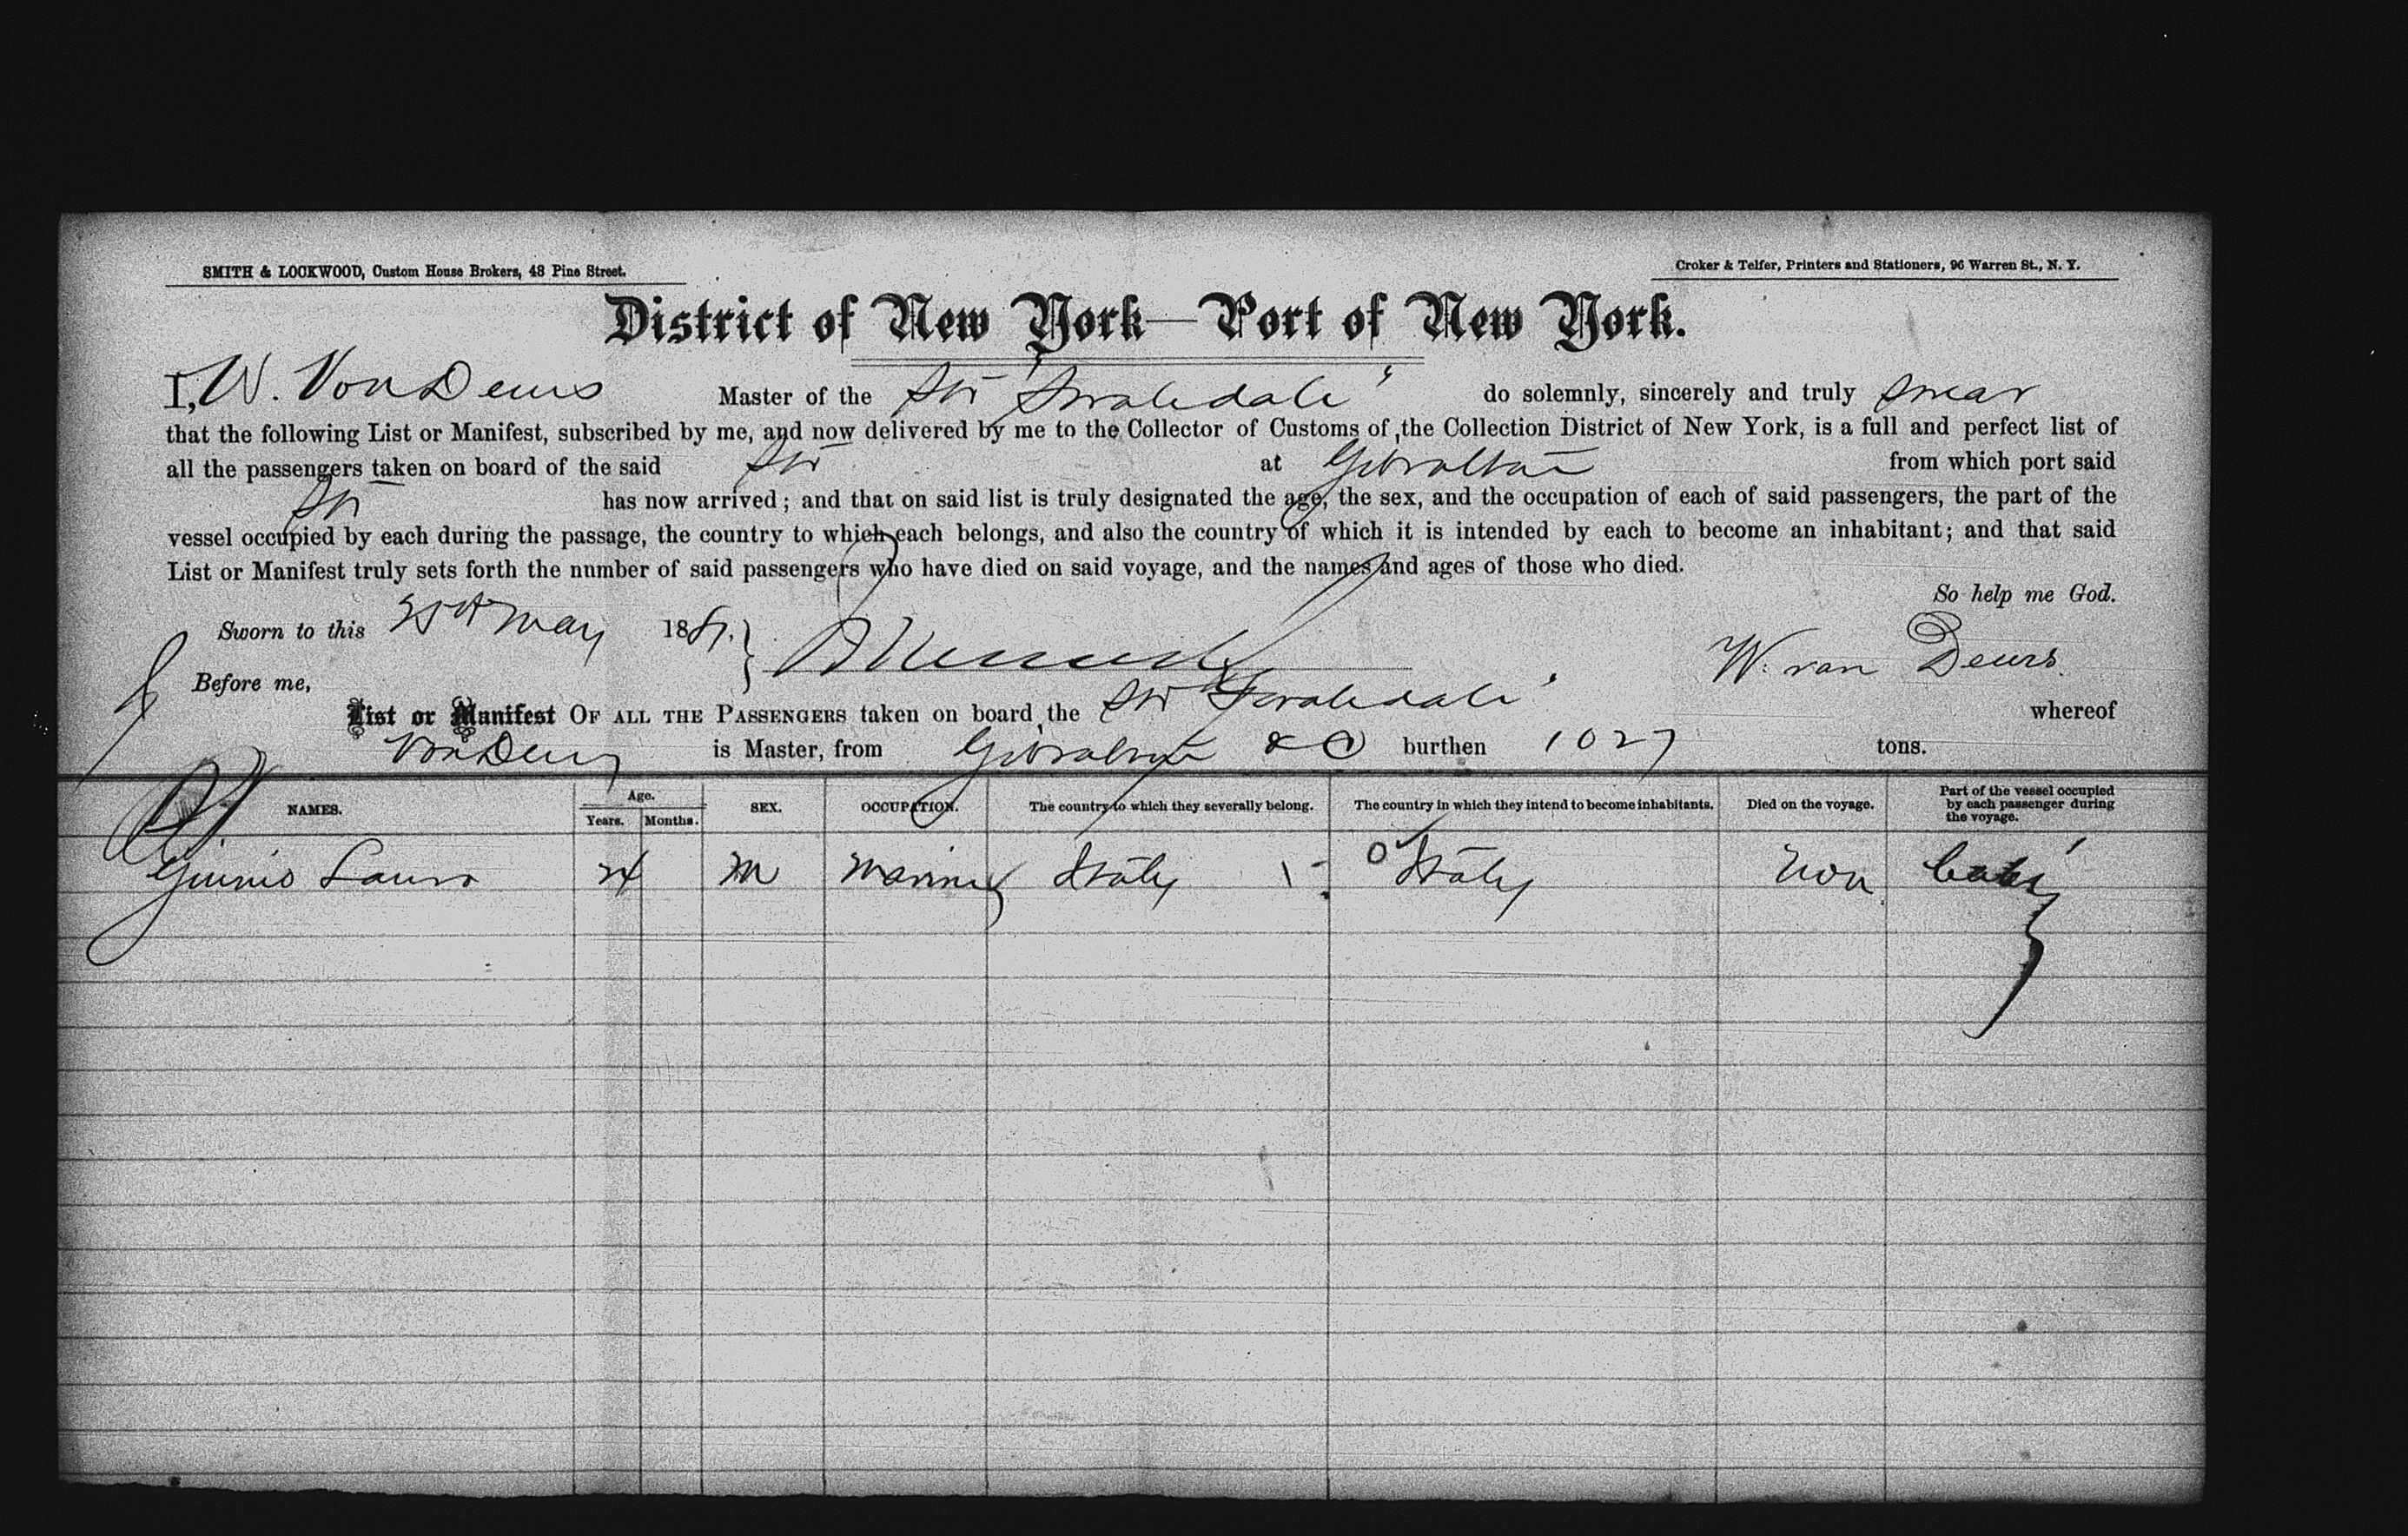 SMITH & LOCKWOOD, Custom House Brokers, 48 Pine Street.
Croker & Telfer, Printers and Stationers, 96 Warren St., N. Y.
District of New York—Port of New York.
I, W. Von Deurs Master of the Str do solemnly, sincerely and truly swear
that the following List or Manifest, subscribed by me, and now delivered by me to the Collector of Customs of the Collection District of New York, is a full and perfect list of
all the passengers taken on board of the said Str at Gibraltar from which port said
Str has now arrived; and that on said list is truly designated the age, the sex, and the occupation of each of said passengers, the part of the
vessel occupied by each during the passage, the country to which each belongs, and also the country of which it is intended by each to become an inhabitant; and that said
List or Manifest truly sets forth the number of said passengers who have died on said voyage, and the names and ages of those who died.
So help me God.
Sworn to this May 1881.
W. van Deurs
Before me,
List or Manifest OF ALL THE PASSENGERS taken on board the Str whereof
Von Deurs is Master, from Gibraltar &c burthen 1027 tons.
NAMES. Age. Years. Months. SEX. OCCUPATION. The country to which they severally belong. The country in which they intend to become inhabitants. Died on the voyage. Part of the vessel occupied by each passenger during the voyage.
Lauro 24 M Mariner Italy Italy Non Cabin